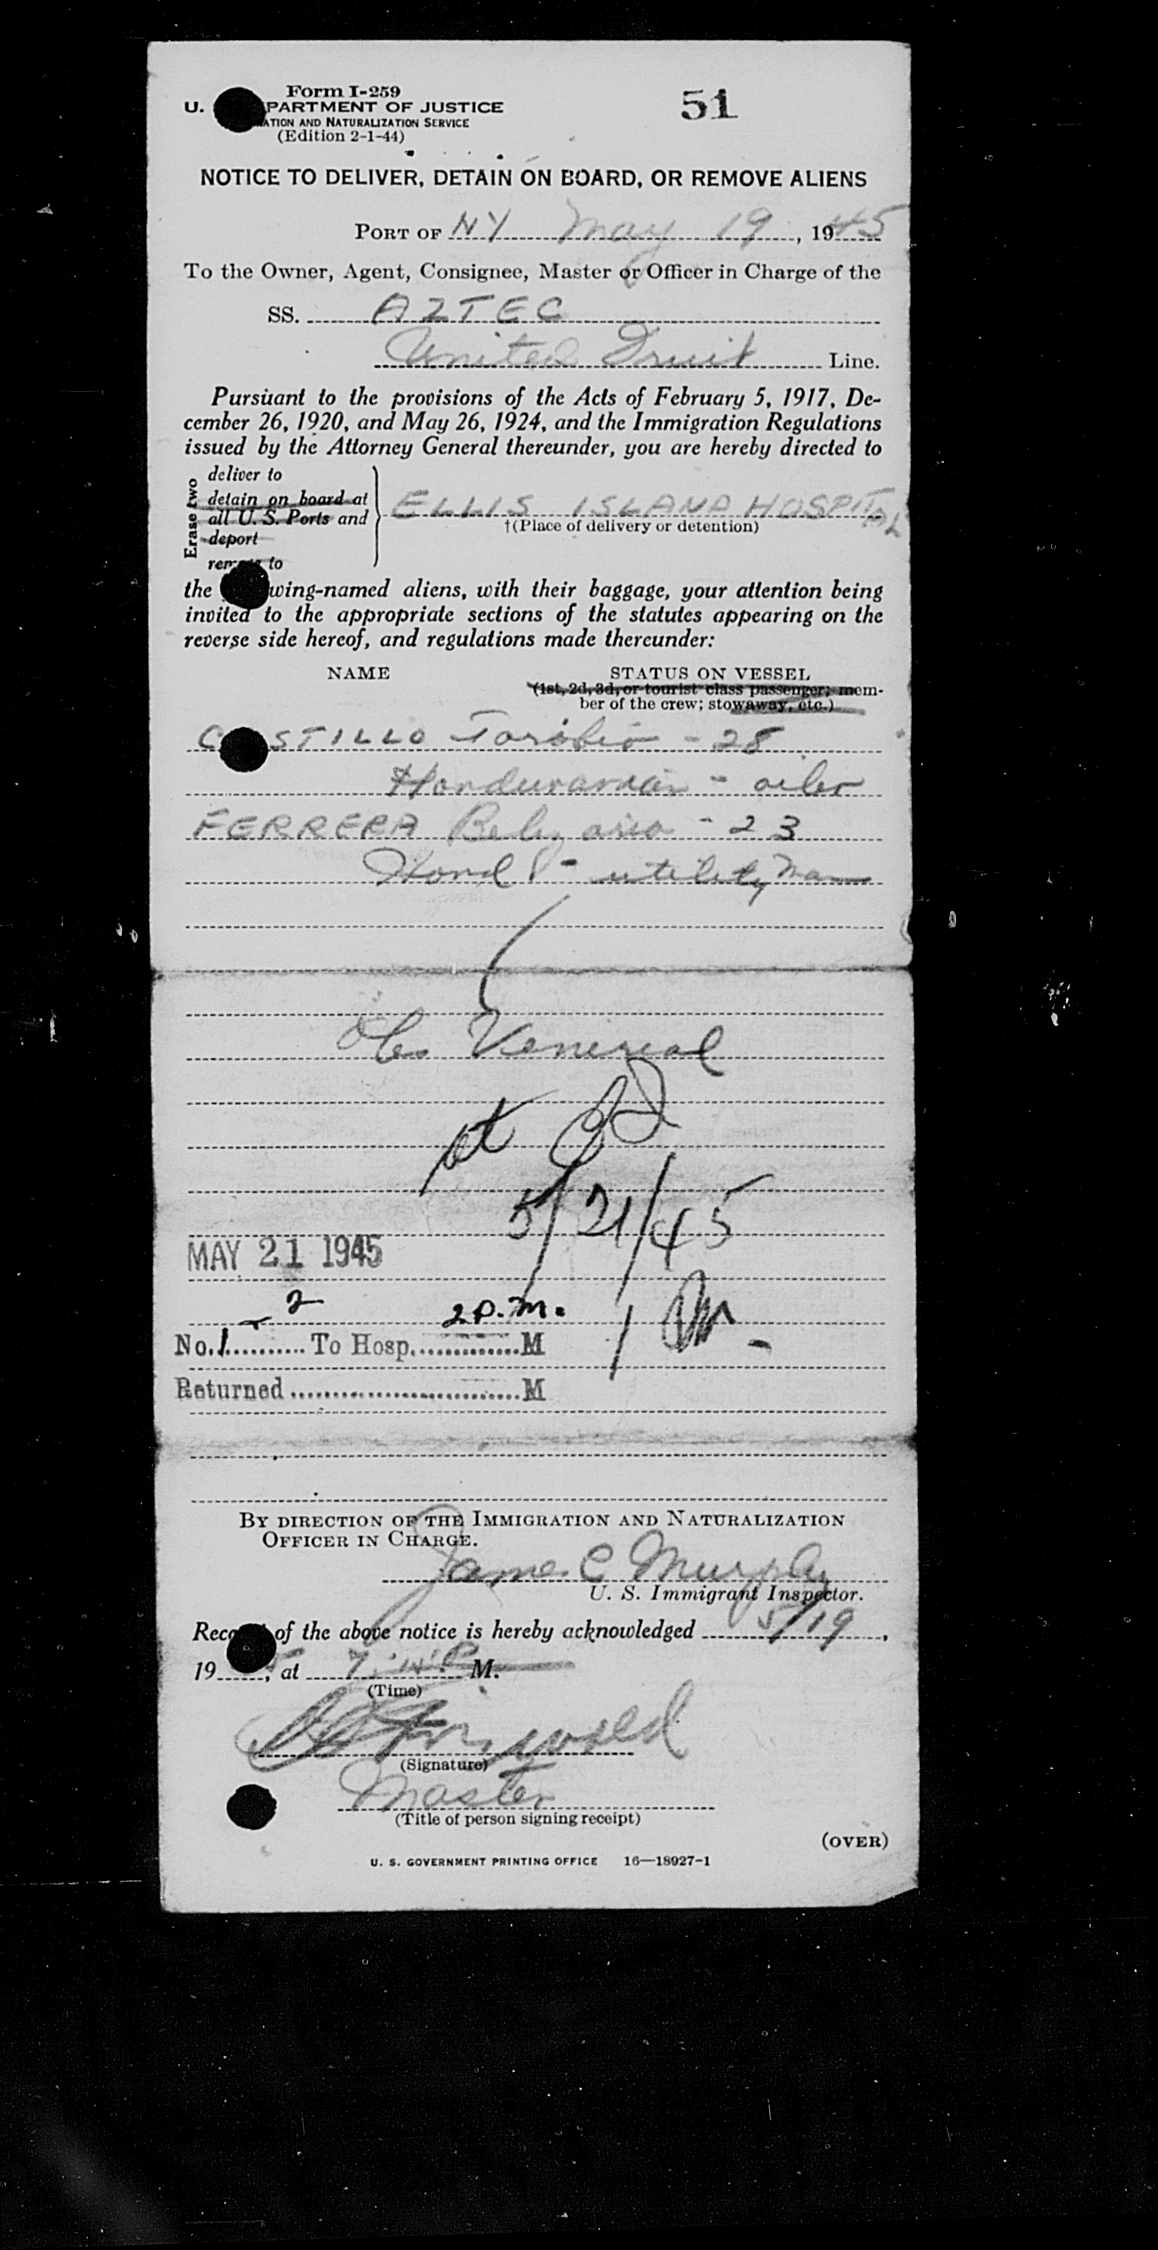 Form I-259
51
U. PARTMENT OF JUSTICE
ATION AND NATURALIZATION SERVICE
(Edition 2-1-44)
NOTICE TO DELIVER, DETAIN ON BOARD, OR REMOVE ALIENS
PORT OF NY May 19, 1945
To the Owner, Agent, Consignee, Master or Officer in Charge of the
SS. AZTEC
United Fruit Line.
Pursuant to the provisions of the Acts of February 5, 1917, De-
cember 26, 1920, and May 26, 1924, and the Immigration Regulations
issued by the Attorney General thereunder, you are hereby directed to
Erase two
deliver to
detain on board at
all U. S. Ports and
deport
remove to
ELLIS ISLAND HOSPITAL
†(Place of delivery or detention)
the wing-named aliens, with their baggage, your attention being
invited to the appropriate sections of the statutes appearing on the
reverse side hereof, and regulations made thereunder:
NAME STATUS ON VESSEL
(1st, 2d, 3d, or tourist class passenger; mem-
ber of the crew; stowaway, etc.)
C STILLO Toribio - 28
Honduranian - oiler
FERRERA Belizario - 23
Hond - utility man
Venereal
5/21/45
MAY 21 1945
2 2 P.M.
No. 1 To Hosp. M
Returned M
BY DIRECTION OF THE IMMIGRATION AND NATURALIZATION
OFFICER IN CHARGE.
James C Murphy
U. S. Immigrant Inspector.
Rece of the above notice is hereby acknowledged 5/19,
19 5, at M.
(Time)
(Signature)
Master
(Title of person signing receipt)
(OVER)
U. S. GOVERNMENT PRINTING OFFICE 16—18927-1